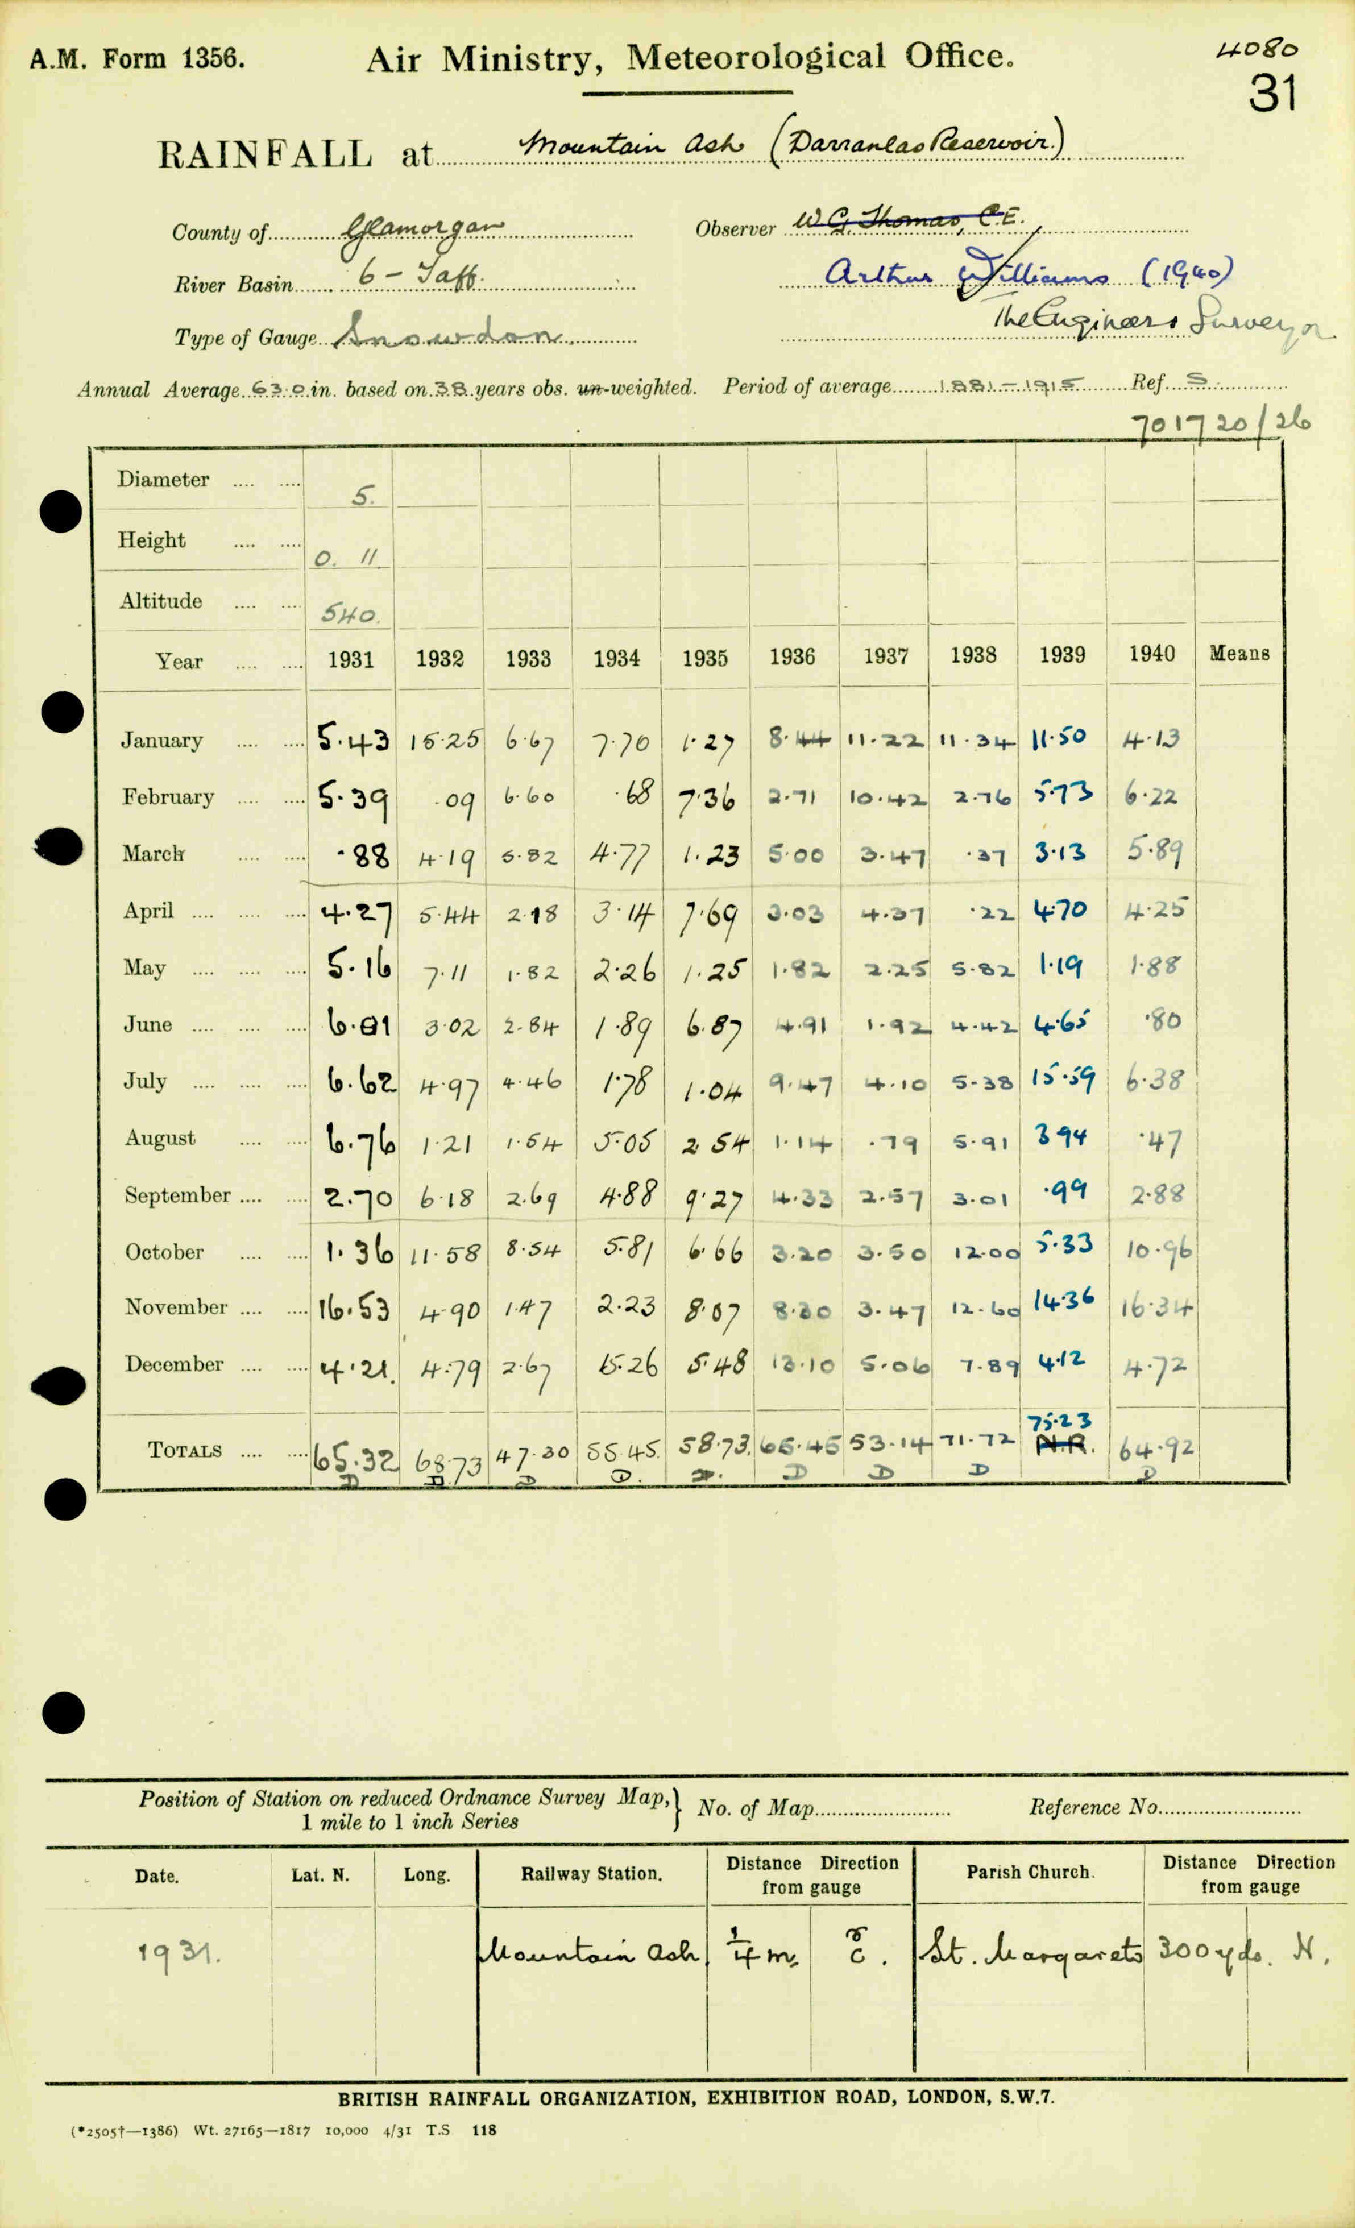 A.M. Form 1356.
Air Ministry, Meteorological Office.
4080
31
RAINFALL at Mountain Ash (Darranlas Reservoir.)
County of Glamorgan
Observer W.G. Thomas, C.E.
River Basin 6 - Taff.
Arthur Williams (1940)
Type of Gauge Snowdon
The Engineers Surveyor
Annual Average 63.0 in. based on 38 years obs. un-weighted. Period of average 1881-1915 Ref. S.
701720/26
Diameter 5.
Height 0. 11.
Altitude 540.
Year 1931 1932 1933 1934 1935 1936 1937 1938 1939 1940 Means
January 5.43 15.25 6.67 7.70 1.27 8.44 11.22 11.34 11.50 4.13
February 5.39 .09 6.60 .68 7.36 2.71 10.42 2.76 5.73 6.22
March .88 4.19 5.82 4.77 1.23 5.00 3.47 .37 3.13 5.89
April 4.27 5.44 2.18 3.14 7.69 3.03 4.37 .22 4.70 4.25
May 5.16 7.11 1.82 2.26 1.25 1.82 2.25 5.82 1.19 1.88
June 6.01 3.02 2.84 1.89 6.87 4.91 1.92 4.42 4.65 .80
July 6.62 4.97 4.46 1.78 1.04 9.47 4.10 5.38 15.59 6.38
August 6.76 1.21 1.54 5.05 2 54 1.14 .79 5.91 3 94 .47
September 2.70 6.18 2.69 4.88 9.27 4.33 2.57 3.01 .99 2.88
October 1.36 11.58 8.54 5.81 6.66 3.20 3.50 12.00 5.33 10.96
November 16.53 4.90 1.47 2.23 8.07 8.30 3.47 12.60 14.36 16.34
December 4.21. 4.79 2.67 15.26 5.48 13.10 5.06 7.89 4.12 4.72
75.23
TOTALS 65.32 68.73 47.30 55.45. 58.73. 65.45 53.14 71.72 N.R. 64.92
D D D D. D. D D D D
Position of Station on reduced Ordnance Survey Map,} No. of Map Reference No.
1 mile to 1 inch Series
Date. Lat. N. Long. Railway Station. Distance Direction from gauge Parish Church. Distance Direction from gauge
1931. Mountain Ash. 1/4 m. E. St. Margarets 300 yds. N.
BRITISH RAINFALL ORGANIZATION, EXHIBITION ROAD, LONDON, S.W.7.
(*2505†—1386) Wt. 27165—1817 10,000 4/31 T.S 118